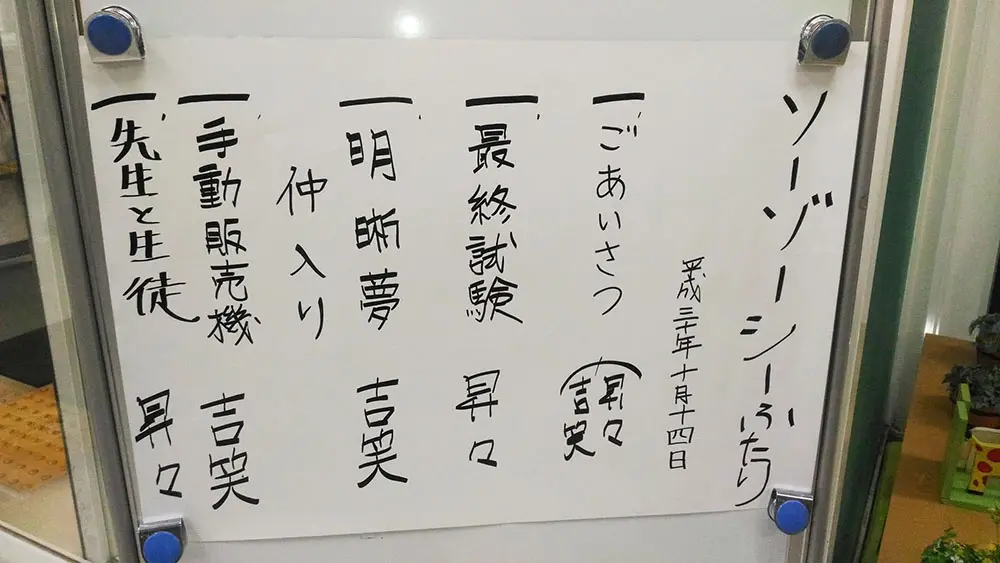 ソーゾーシーふたり
平成三十年十月十四日
一、ごあいさつ 昇々 吉笑
一、最終試験 昇々
一、明晰夢 吉笑
仲入り
一、手動販売機 吉笑
一、先生と生徒 昇々